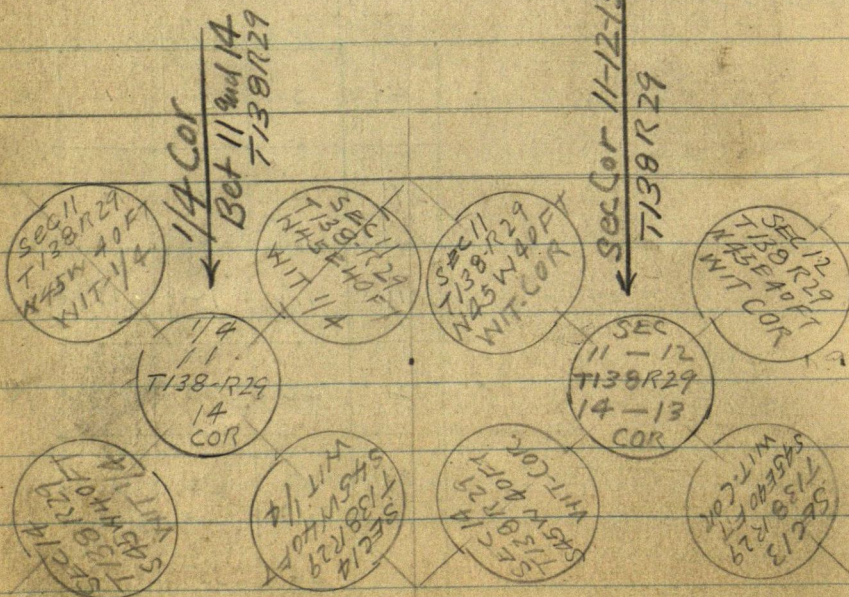 1/4 Cor
Bet 11 and 14
T138R29
Sec Cor 11-12-1
T138R29
SEC 11
T138R29
N45W 40FT
WIT-1/4
SEC 11
T138-R29
N45E40FT
WIT 1/4
SEC 11
T138-R29
N45W40FT
WIT-COR
SEC 12
T138R29
N45E40FT
WIT COR
1/4
11
T138-R29
14
COR
SEC
11 — 12
T138R29
14 — 13
COR
SEC 14
T138R29
S45W40FT
WIT 1/4
SEC 14
T138R29
S45W40F
WIT 1/4
SEC 14
T138R29
S45W 40FT
WIT-COR
SEC 13
T138R29
S45E40FT
WIT-COR